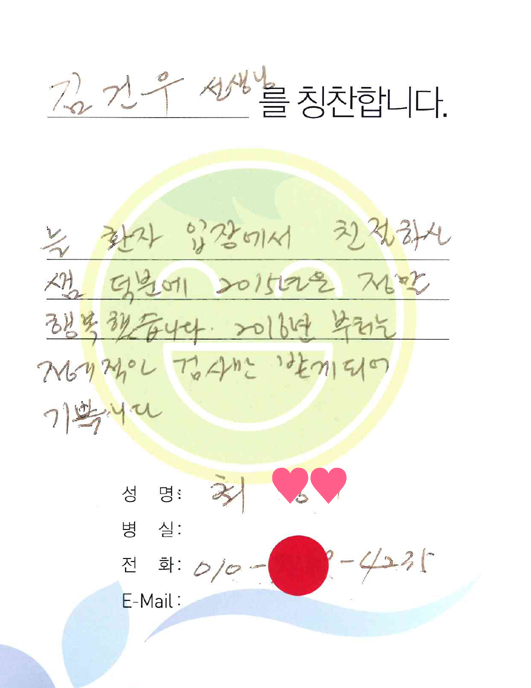 김건우 선생님 를 칭찬합니다.
늘 환자 입장에서 친절하신
샘 덕분에 2015년은 정말
행복했습니다. 2016년 부터는
정기적인 검사만 받게되어
기쁩니다
성 명: 최
병 실:
전 화: 010- -4235
E-Mail: